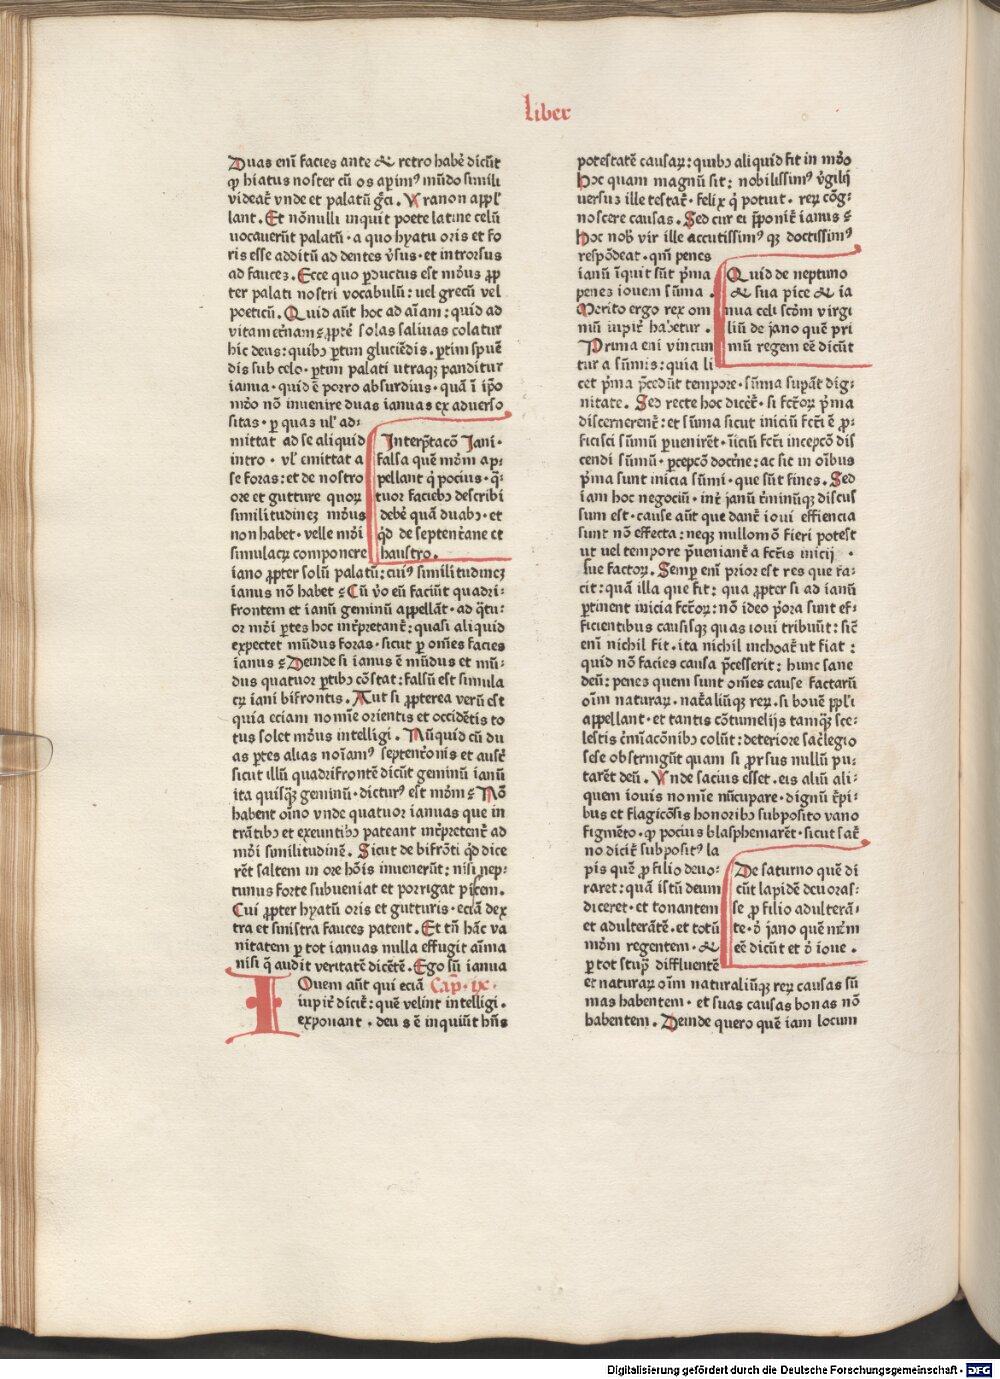 liber
Duas eni facies ante & retro habē dicūt
ꝙ hiatus noster cū os aꝑim⁹ mūdo simili
videat᷑ vnde et palatū gr̄ci · Vranon appl̄
lant . Et nōnulli inquit poete latine celū
uocauerūt palatū · a quo hyatu oris et fo
ris esse additū ad dentes v̄sus · et introrsus
ad fauces . Ecce quo ꝑductus est mūdus ꝓp
ter palati nostri vocabulū : uel grecū vel
poeticū . Quid aūt hoc ad aīam : quid ad
vitam et̄nam
solas saliuas colatur
hic deus : quibꝫ ꝑtim gluciēdis . ꝑtim spuē
dis sub celo · ꝑtim palati utraqꝫ panditur
ianua · quid ē porro absurdius · quā ī ip̄o
mūdo nō inuenire duas ianuas ex aduerso
sitas · ꝑ quas ul̄ ad-
mittat ad se aliquid
intro · vl̄ emittat a
se foras : et de nostro
ore et gutture quoꝝ
similitudineꝫ mūdus
non habet · velle mūdi
simulacꝝ componere
Interp̄tacō Jani ·
falsa quē mūdum ap-
pellant q̇ pocius · q̈-
tuor faciebꝫ describi
debē quā duabꝫ · et
qd̄ de septentr̄ane et
haustro .
iano ꝓpter solū palatū : cui⁹ similitudineꝫ
ianus nō habet Cū ṽo eū faciūt quadri-
frontem et ianū geminū appellāt · ad q̈tu-
or mūdi ꝑtes hoc int̄p̄tant᷑ : quasi aliquid
expectet mūdus foras · sicut ꝑ om̄es facies
ianus Deinde si ianus ē mūdus et mū-
dus quatuor ꝑtibꝫ cōstat : falsū est simula
cꝝ iani bifrontis . Aut si ꝓpterea verū est
quia eciam nomīe orientis et occidētis to
tus solet mūdus intelligi . Nūquid cū du
as ꝑtes alias noīam⁹ septentr̄onis et aust᷑
sicut illū quadrifrontē dicūt geminū ianū
ita quisqꝫ geminū · dictur⁹ est mūdum Nō
habent oīno vnde quatuor ianuas que in
trātibꝫ et exeuntibꝫ pateant int̄pretent᷑ ad
mūdi similitudinē . Sicut de bifrōti qd̄ dice
rēt saltem in ore hoīs inuenerūt : nisi nep-
tunus forte subueniat et porrigat piscem .
Cui ꝓpter hyatū oris et gutturis · eciā dex
tra et sinistra fauces patent . Et tn̄ hāc va
nitatem ꝑ tot ianuas nulla effugit aīma
nisi q̄ audit veritatē dicētē . Ego sū ianua
IQuem aūt qui eciā Cap̄ · ix ·
iupit᷑ dicit᷑ : quē velint intelligi .
exponant . deus ē inquiūt hn̄s
potestatē causaꝝ : quibꝫ aliquid fit in mūdo
Hoc quam magnū sit : nobilissim⁹ v̄gilij
uersus ille testat᷑ · felix q̇ potuit . reꝝ cōg-
noscere causas . Sed cur ei p̄ponit᷑ ianus
Hoc nob̄ vir ille accutissim⁹ qꝫ doctissim⁹
respōdeat . qm̄ penes
ianū iquit sūt p̄ma
penes iouem sūma .
Merito ergo rex om
niū iupit᷑ habetur .
Prima eni vincun
tur a sūmis : quia li
Quid de neptuno
& sua pice & ia
nua celi scdm virgi
liū de jano quē pri
mū regem eē dicūt
cet p̄ma p̄cedūt tempore · sūma supāt dig-
nitate . Sed recte hoc dicet᷑ · si fctoꝝ p̄ma
discernerent᷑ : et sūma sicut iniciū fcti ē ꝓ-
ficisci sūmū ꝑuenirēt · iniciū fcti incepcō dis
cendi sūmū · ꝑcepcō doctr̄ne : ac sit in oībus
p̄ma sunt inicia sūmi · que sūt fines . Sed
iam hoc negociū · int᷑ janū t̄minūqꝫ discus
sum est · cause aūt que dant᷑ ioui efficiencia
sunt nō effecta : neqꝫ nullomō fieri potest
ut uel tempore p̄ueniant᷑ a fctis inicij .
sue factoꝝ . Semꝑ enī prior est res que fa-
cit : quā illa que fit : qua ꝓpter si ad ianū
ꝑtinent inicia fctoꝝ : nō ideo p̄ora sunt ef-
ficientibus causisqꝫ quas ioui tribuūt : sic
enī nichil fit · ita nichil inchoat᷑ ut fiat :
quid nō facies causa p̄cesserit : hunc sane
deū : penes quem sunt om̄es cause factarū
oīm naturaꝝ · nat᷑aliūqꝫ reꝝ · si bouē pp̄li
appellant · et tantis cōtumelijs tamqꝫ sce-
lestis c̄miacōnibꝫ colūt : deteriore sac̄legio
sese obstringūt quam si ꝓrsus nullū pu-
tarēt deū . Vnde sacius esset . eis aliū ali-
quem iouis nomīe nūcupare · dignū t᷑pi-
bus et flagicōsis honoribꝫ subposito vano
figmēto · ꝙ pocius blasphemarēt · sicut sat᷑
no dicit᷑ subposit⁹ la
pis quē ꝓ filio deuo-
raret : quā istū deum
diceret · et tonantem
et adulterātē . et totū
mūdum regentem . &
ꝑ tot stupꝝ diffluentē
De saturno quē di
cūt lapidē deuoras-
se ꝓ filio adulterā-
te · ō jano quē
eē dicūt et ō ioue .
et naturaꝝ oīm naturaliūqꝫ reꝝ causas sū
mas habentem · et suas causas bonas nō
habentem . Deinde quero quē iam locum
Digitalisierung gefördert durch die Deutsche Forschungsgemeinschaft · DFG